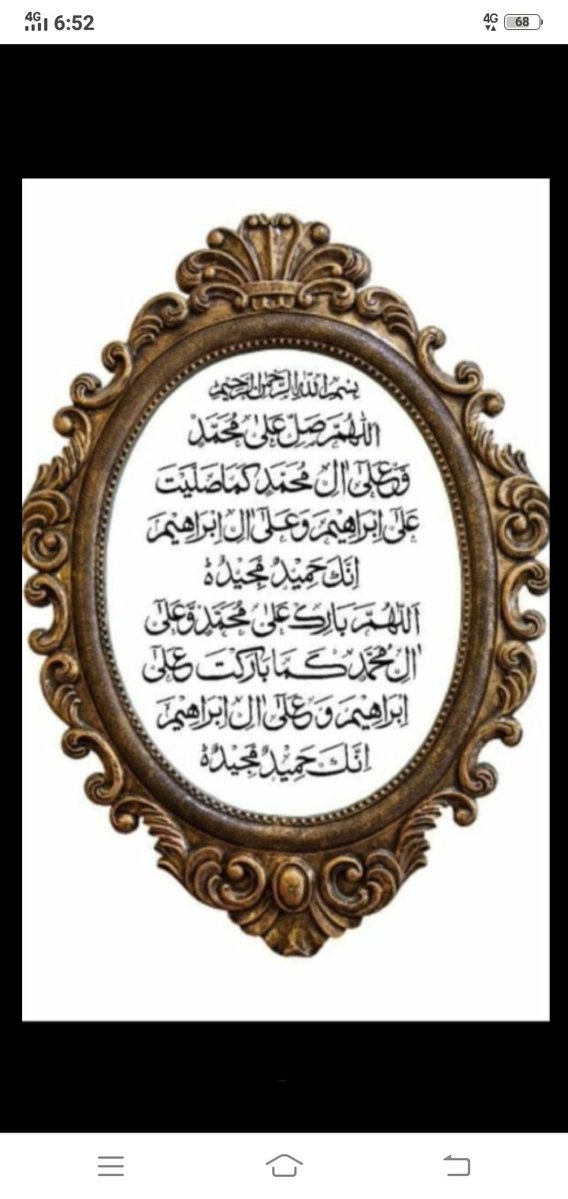 4G 6:52 4G 68
بِسْمِ اللهِ الرَّحْمٰنِ الرَّحِيْمِ
اَللّٰهُمَّ صَلِّ عَلٰى مُحَمَّدٍ
وَّعَلٰٓى اٰلِ مُحَمَّدٍ كَمَا صَلَّيْتَ
عَلٰٓى اِبْرَاهِيْمَ وَعَلٰٓى اٰلِ اِبْرَاهِيْمَ
اِنَّكَ حَمِيْدٌ مَّجِيْدٌ ۃ
اَللّٰهُمَّ بَارِكْ عَلٰى مُحَمَّدٍ وَّعَلٰٓى
اٰلِ مُحَمَّدٍ كَمَا بَارَكْتَ عَلٰٓى
اِبْرَاهِيْمَ وَعَلٰٓى اٰلِ اِبْرَاهِيْمَ
اِنَّكَ حَمِيْدٌ مَّجِيْدٌ ۃ